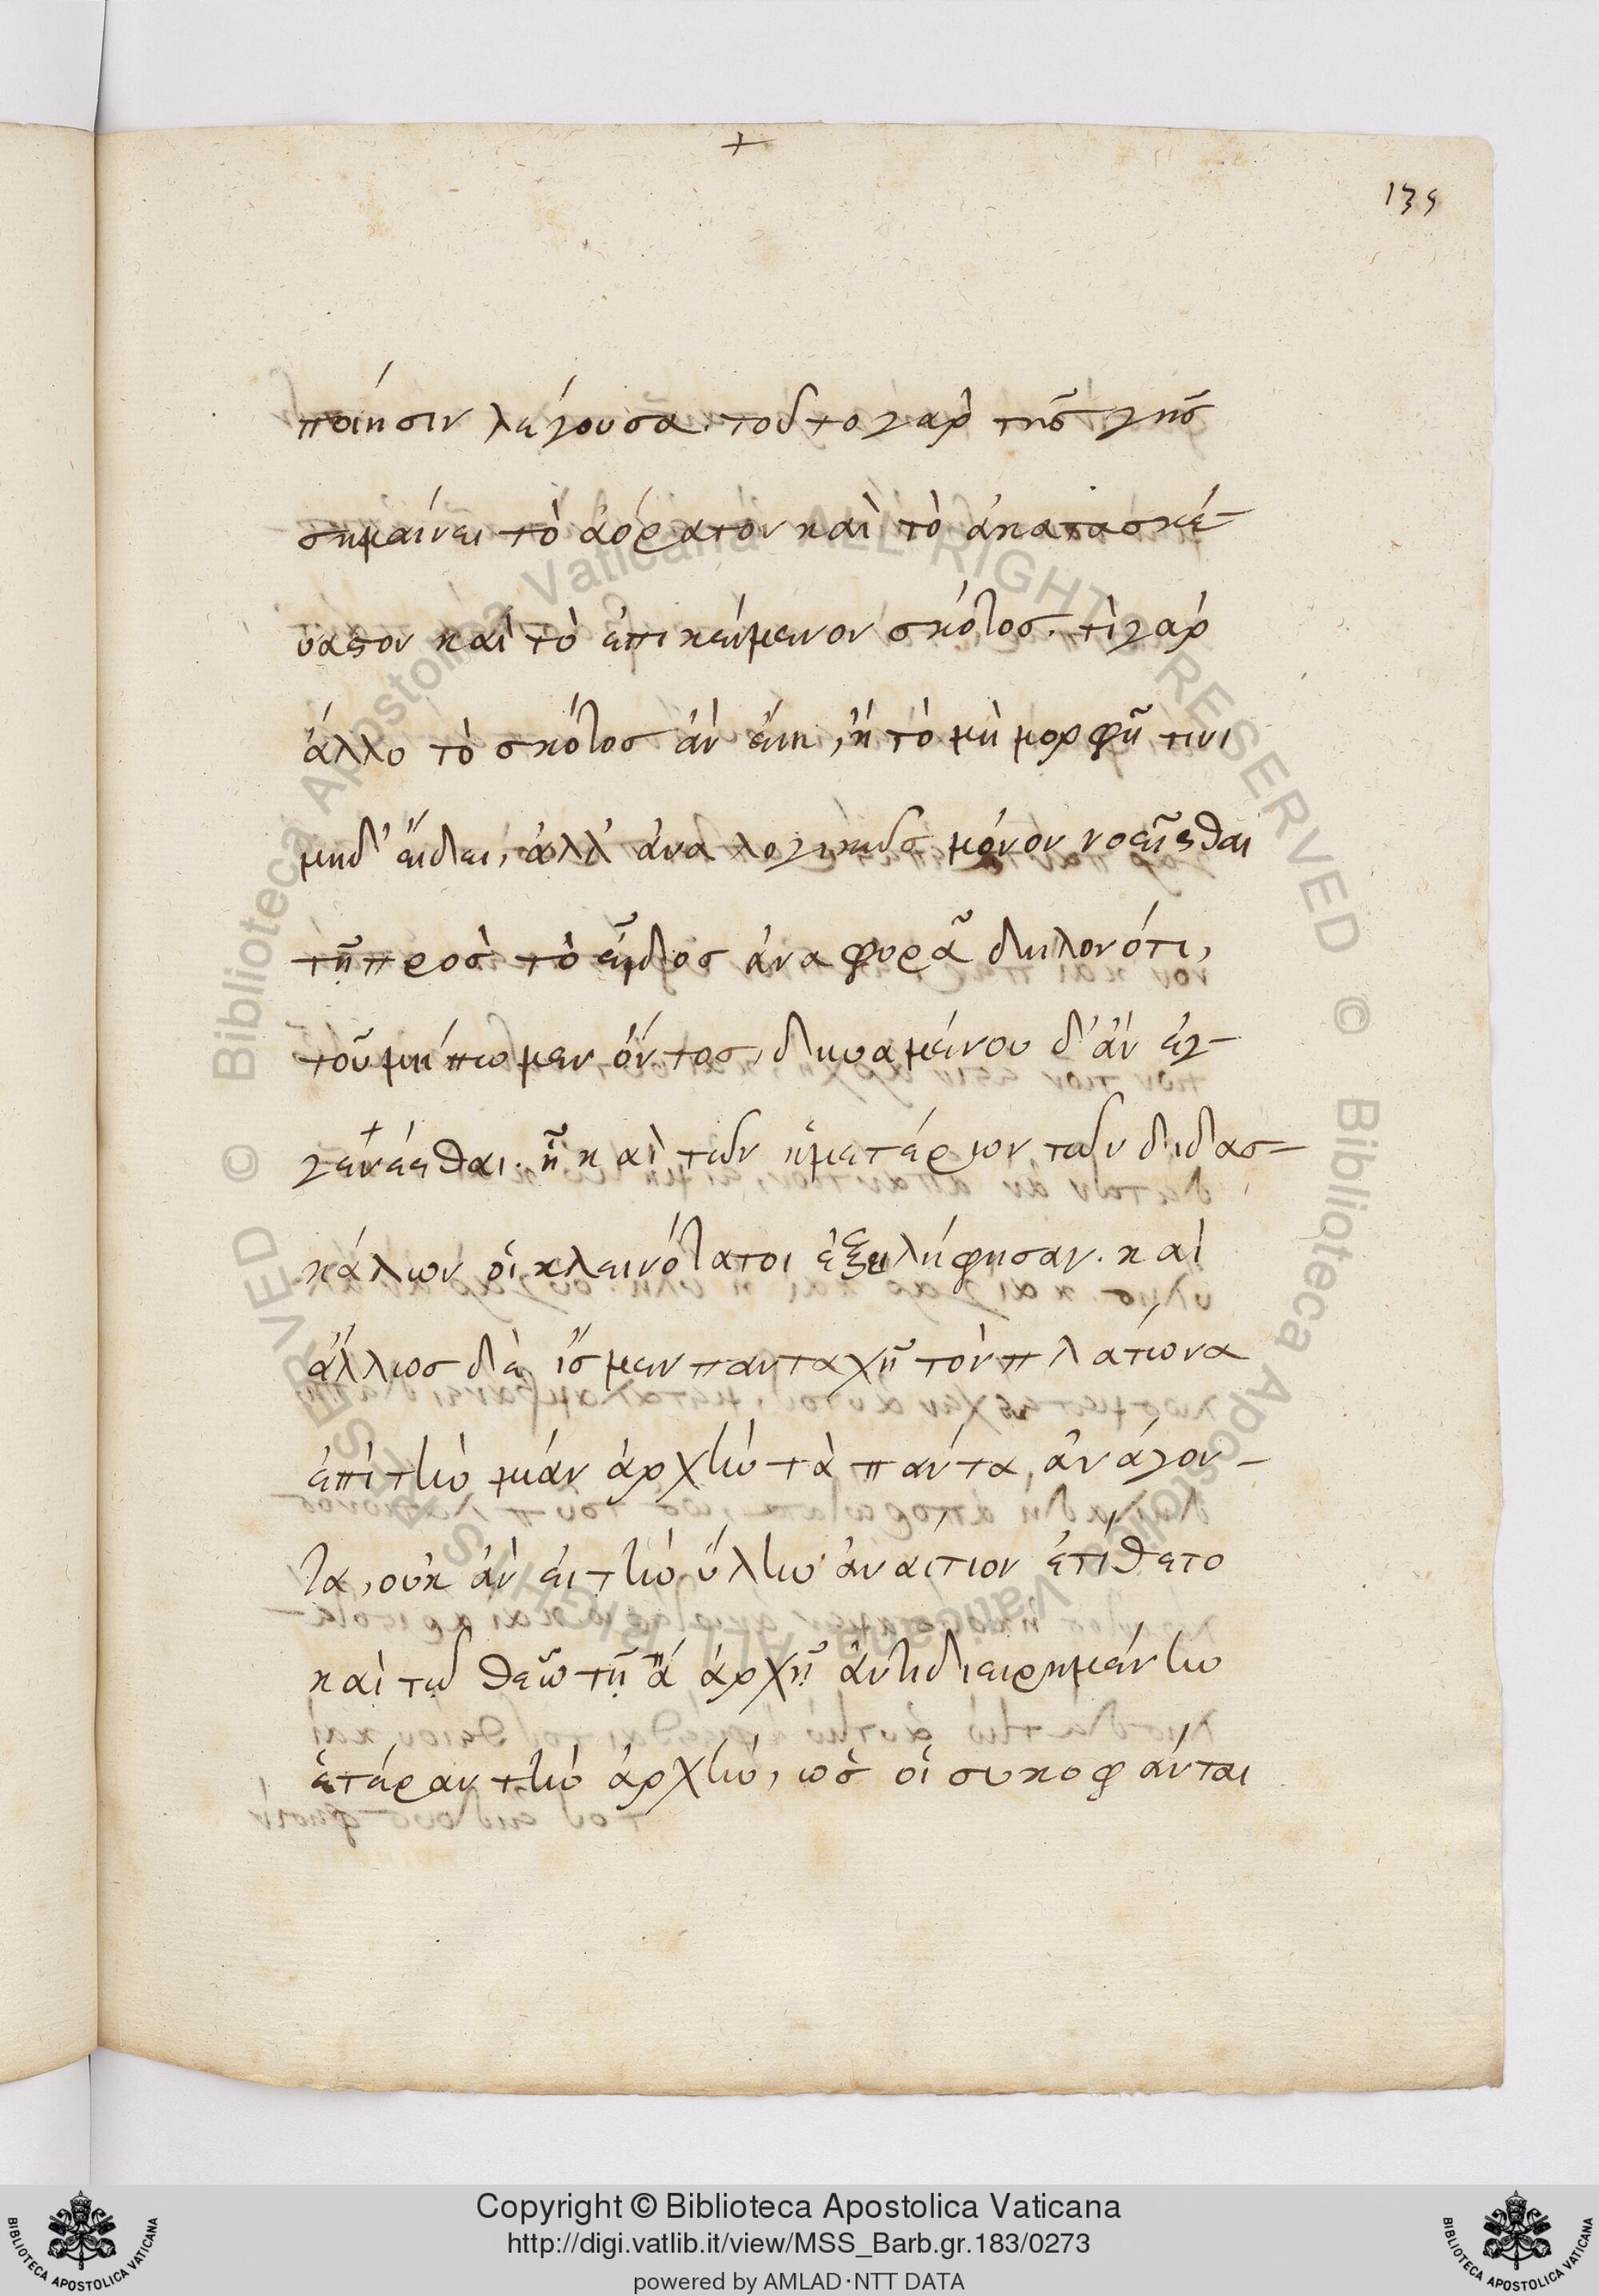 +
135
ποίησιν λέγουσα. τοῦτο γὰρ τῆς γῆς
σημαίνει τὸ ἀόρατον καὶ τὸ ἀκατασκέ-
υαστον καὶ τὸ ἐπικείμενον σκότος. τί γάρ
ἄλλο τὸ σκότος ἂν εἴη, ἢ τὸ μὴ μορφῇ τινι
μηδ' εἴδει, ἀλλ' ἀναλογικῶς μόνον νοεῖσθαι
τῇ πρὸς τὸ εἶδος ἀναφορᾷ δηλονότι,
τοῦ μήπω μὲν ὄντος, δυναμένου δ' ἂν ἐγ-
γενέσθαι. ᾗ καὶ τῶν ἡμετέρων τῶν διδασ-
κάλων οἱ κλεινότατοι ἐξειλήφησαν. καὶ
ἄλλως δὲ ἴσμεν πανταχῇ τὸν πλάτωνα
ἐπὶ τὴν μίαν ἀρχὴν τὰ πάντα ἀνάγον-
τα, οὐκ ἂν εἰ τὴν ὕλην ἀναίτιον ἐτίθετο
καὶ τῷ θεῷ τῇ ᾱ ἀρχῇ ἀντιδιειρημένην
ἑτέραν τὴν ἀρχὴν, ὡς οἱ συκοφάνται
Copyright © Biblioteca Apostolica Vaticana
http://digi.vatlib.it/view/MSS_Barb.gr.183/0273
powered by AMLAD·NTT DATA
BIBLIOTECA APOSTOLICA VATICANA
BIBLIOTECA APOSTOLICA VATICANA
© Biblioteca Apostolica Vaticana ALL RIGHTS RESERVED
© Biblioteca Apostolica Vaticana ALL RIGHTS RESERVED